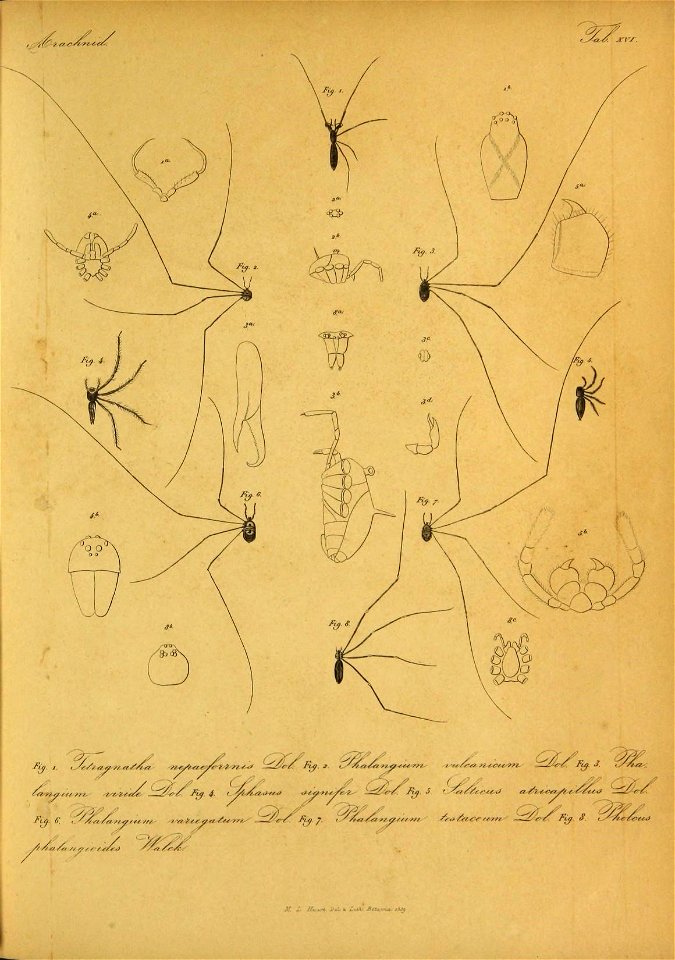 Arachnid.
Tab. XVI.
Fig. 1.
1b.
1a.
5a.
4a.
2a.
2b.
Fig. 2.
Fig. 3.
8a.
3a.
3c.
Fig. 4.
3b.
3d.
Fig. 6.
Fig. 7.
4b.
5b.
Fig. 8.
8b.
8c.
Fig. 1. Tetragnatha nepaeformis Dol. Fig. 2. Phalangium vulcanicum Dol. Fig. 3. Pha-
langium viride Dol. Fig. 4. Sphasus signifer Dol. Fig. 5. Salticus atricapillus Dol.
Fig. 6. Phalangium variegatum Dol. Fig 7. Phalangium testaceum Dol. Fig. 8. Pholcus
phalangioides Walck.
Del. & Lith. Batavia. 1859